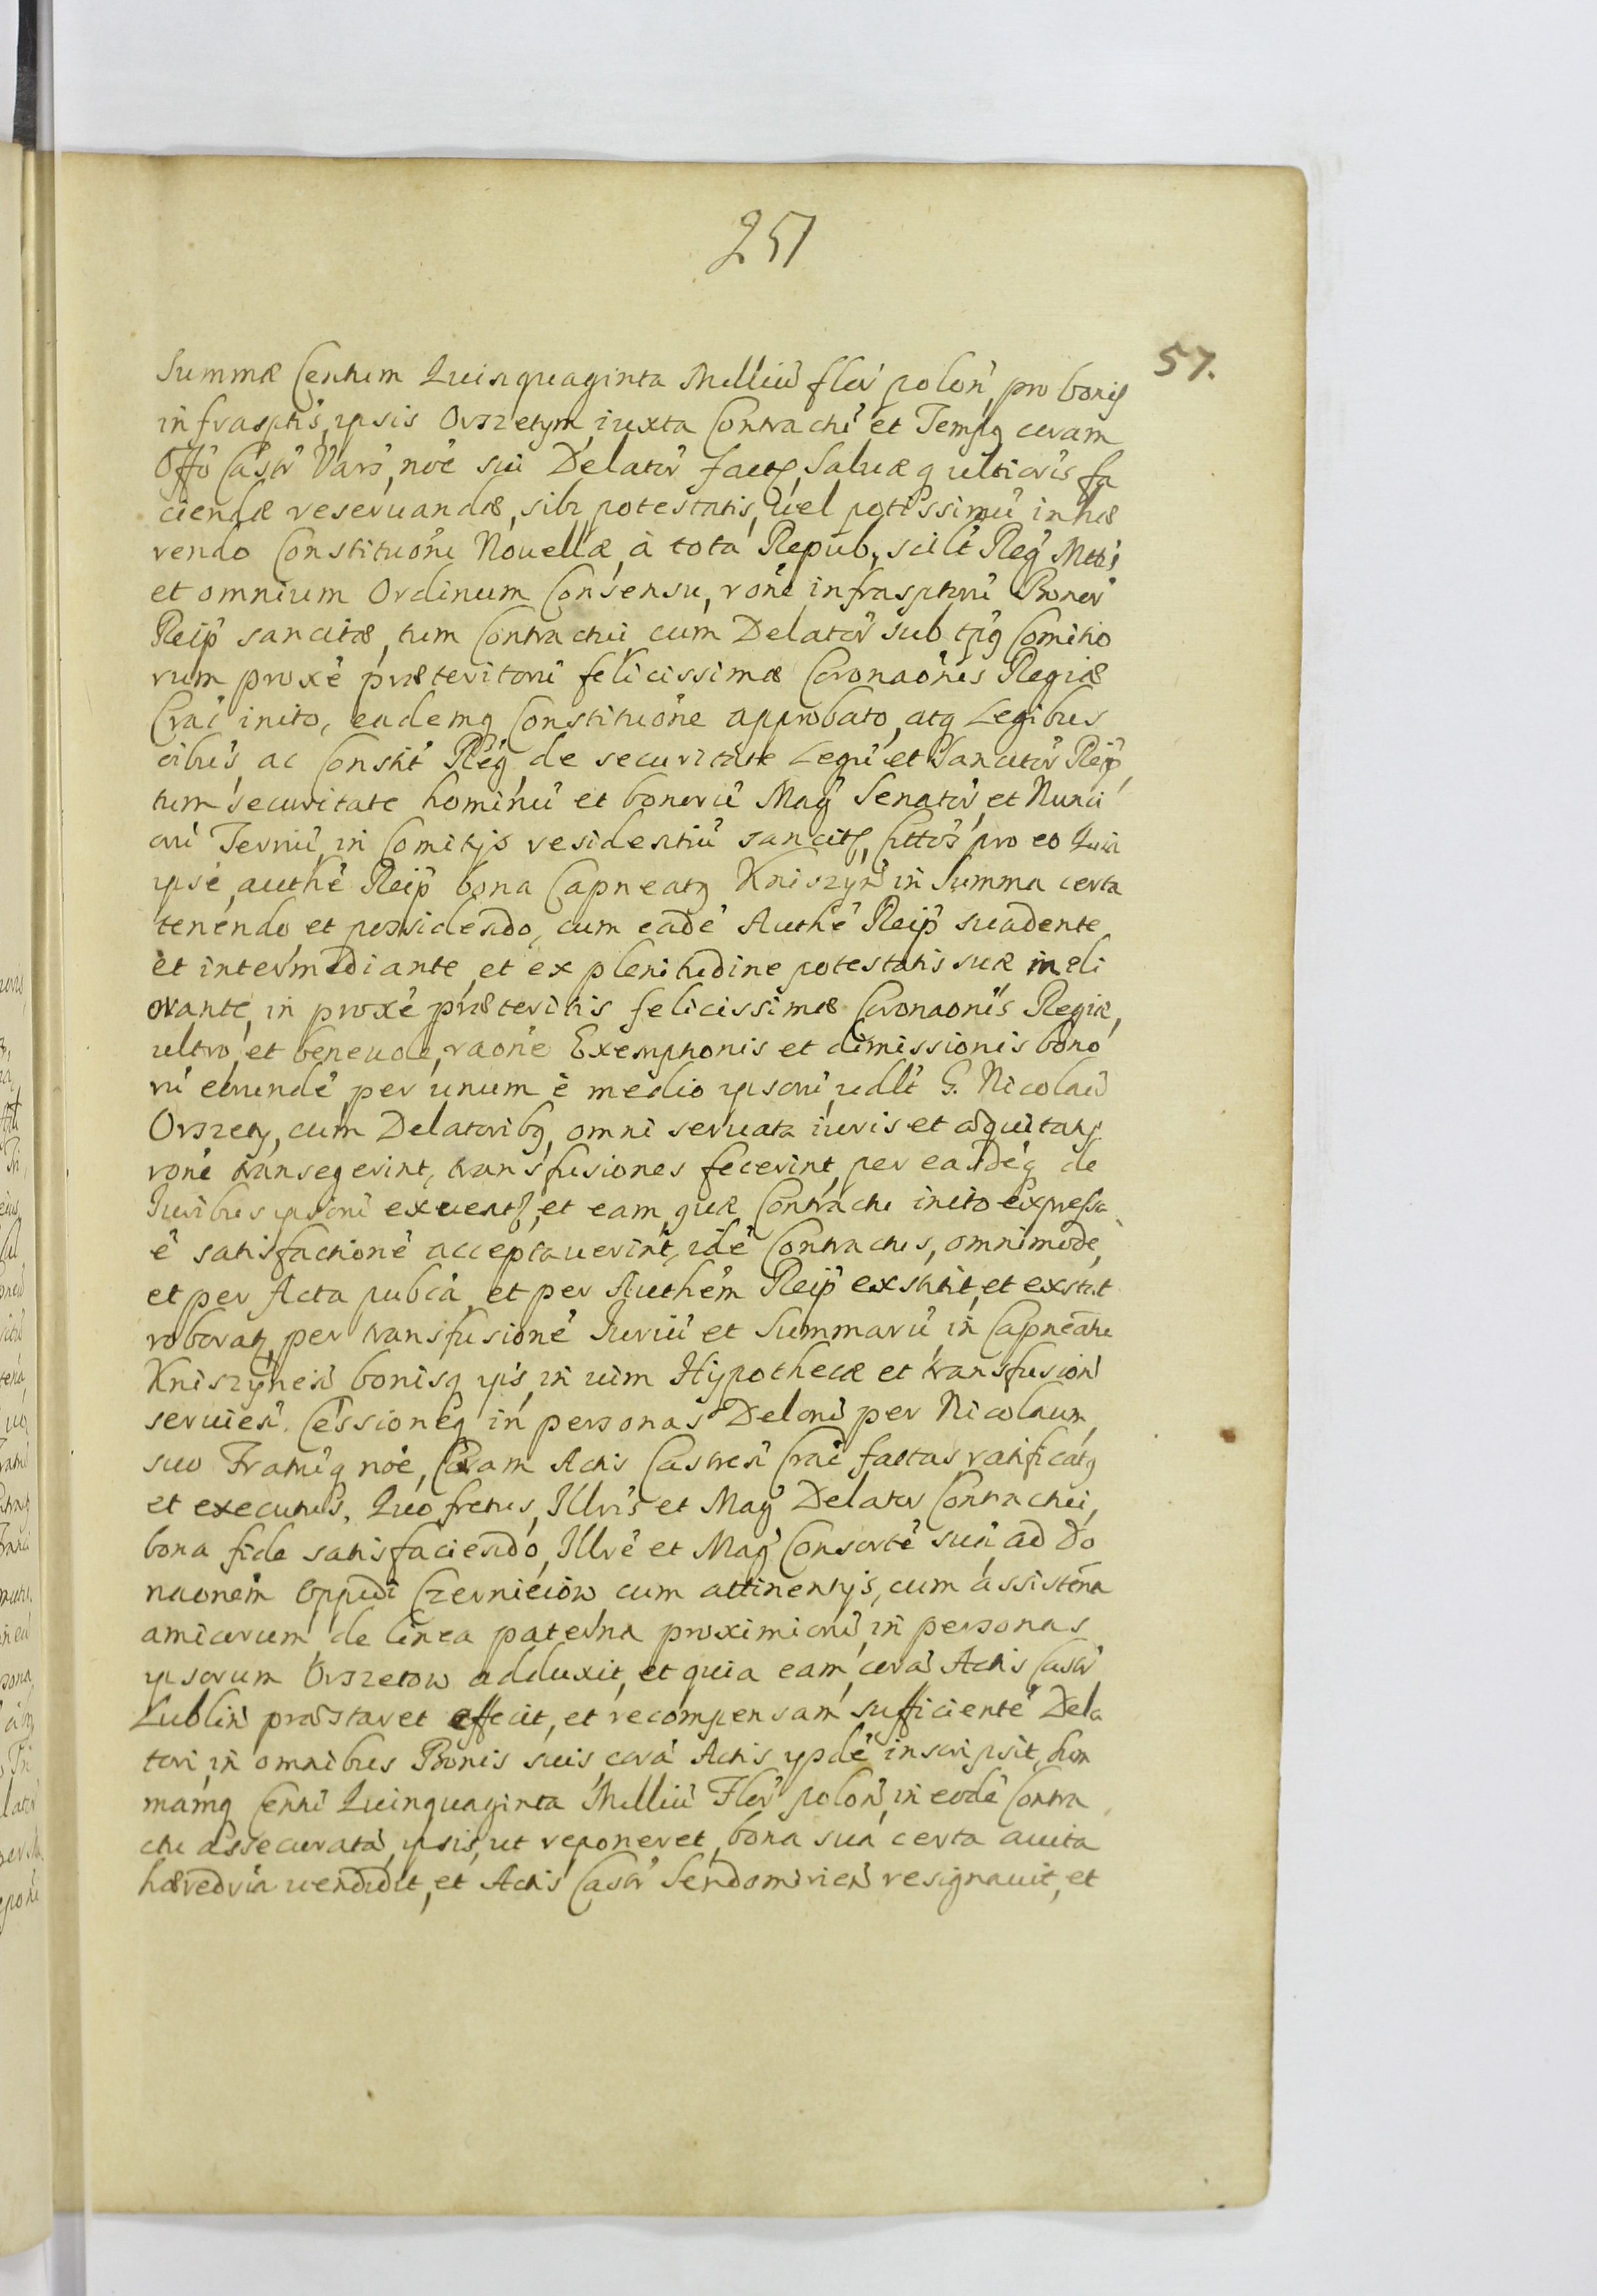 251
57.
Summæ Centum Quinquaginta Milliu flor polon, pro bonis
infrasptis, ipsis Orszetym, iuxta Contractu et Tempq coram
Offo Castr Vars, noe sui Delator factę, Saluæq ulterioris fa
ciendæ reseruandæ, sibi potestatis, uel potissimu inhæ
rendo Constituoni Nouellæ, à tota Repub, scilt Reg Mttis
et omnium Ordinum Consensu, rone infrasptoru Bonor
Reip sancitæ, tum Contractui cum Delator sub tpg Comitio
rum proxe præteritoru felicissimæ Coronaonis Regiæ
Crac inito, eademq Constituone approbato, atq Legibus
oibus, ac Constit Reg de securitate Legu et Sancitor Reip,
tum securitate hominu et bonoru Mag Senator, et Nunci
oru Terriu, in Comitijs residentiu sancitę, Cittos pro eo Quia
ipse, authe Reip bona Capneatq Kniszyn in Summa certa
tenendo et possidendo, cum eade Authe Reip suadente
et intermediante, et ex plenitudine potestatis suæ meli
orante, in proxe præteritis felicissimæ Coronaonis Regiæ,
ultro, et beneuole, raone Exemptionis et dimissionis bono
ru eorunde per unum è medio ipsoru, udlt G. Nicolau
Orszety, cum Delatoribq, omni seruata iuris et æquitatis
rone transegerint, transfusiones fecerint, per easdeq de
Iuribus ipsoru exuentę, et eam quæ Contractu inito expressa
e satisfactione acceptauerint, ide Contractus, omnimode,
et per Acta publca, et per Authem Reip exstitit, et exstat
roboratq, per transfusione Iuriu et Summaru, in Capneatu
Kniszynen bonisq ipis, in uim Hypothecæ et transfusion
seruien. Cessioneq in personas Deloru per Nicolaum,
suo Fratruq noe, Coram Actis Castren Crac factas ratificatq
et executus. Quo fretus, Illris et Mag Delator Contractui,
bona fide satisfaciendo, Illre et Mag Consorte sua, ad Do
naonem Oppidi Czernieiow cum attinentijs, cum assistena
amicorum de linea paterna proximioru, in personas
ipsorum Orszetow adduxit, et quia eam, cora Actis Castr
Lublin præstaret effecit, et recompensam sufficiente Dela
tori, in omnibus Bonis suis, cora Actis ipde inscripsit, Sum
mamq Centu Quinquaginta Milliu Flor polon, in eode Contra
ctu assecurata, ipsis, ut reponeret, bona sua certa auita
hæredria uendidit, et Actis Castr Sendomirien resignauit, et